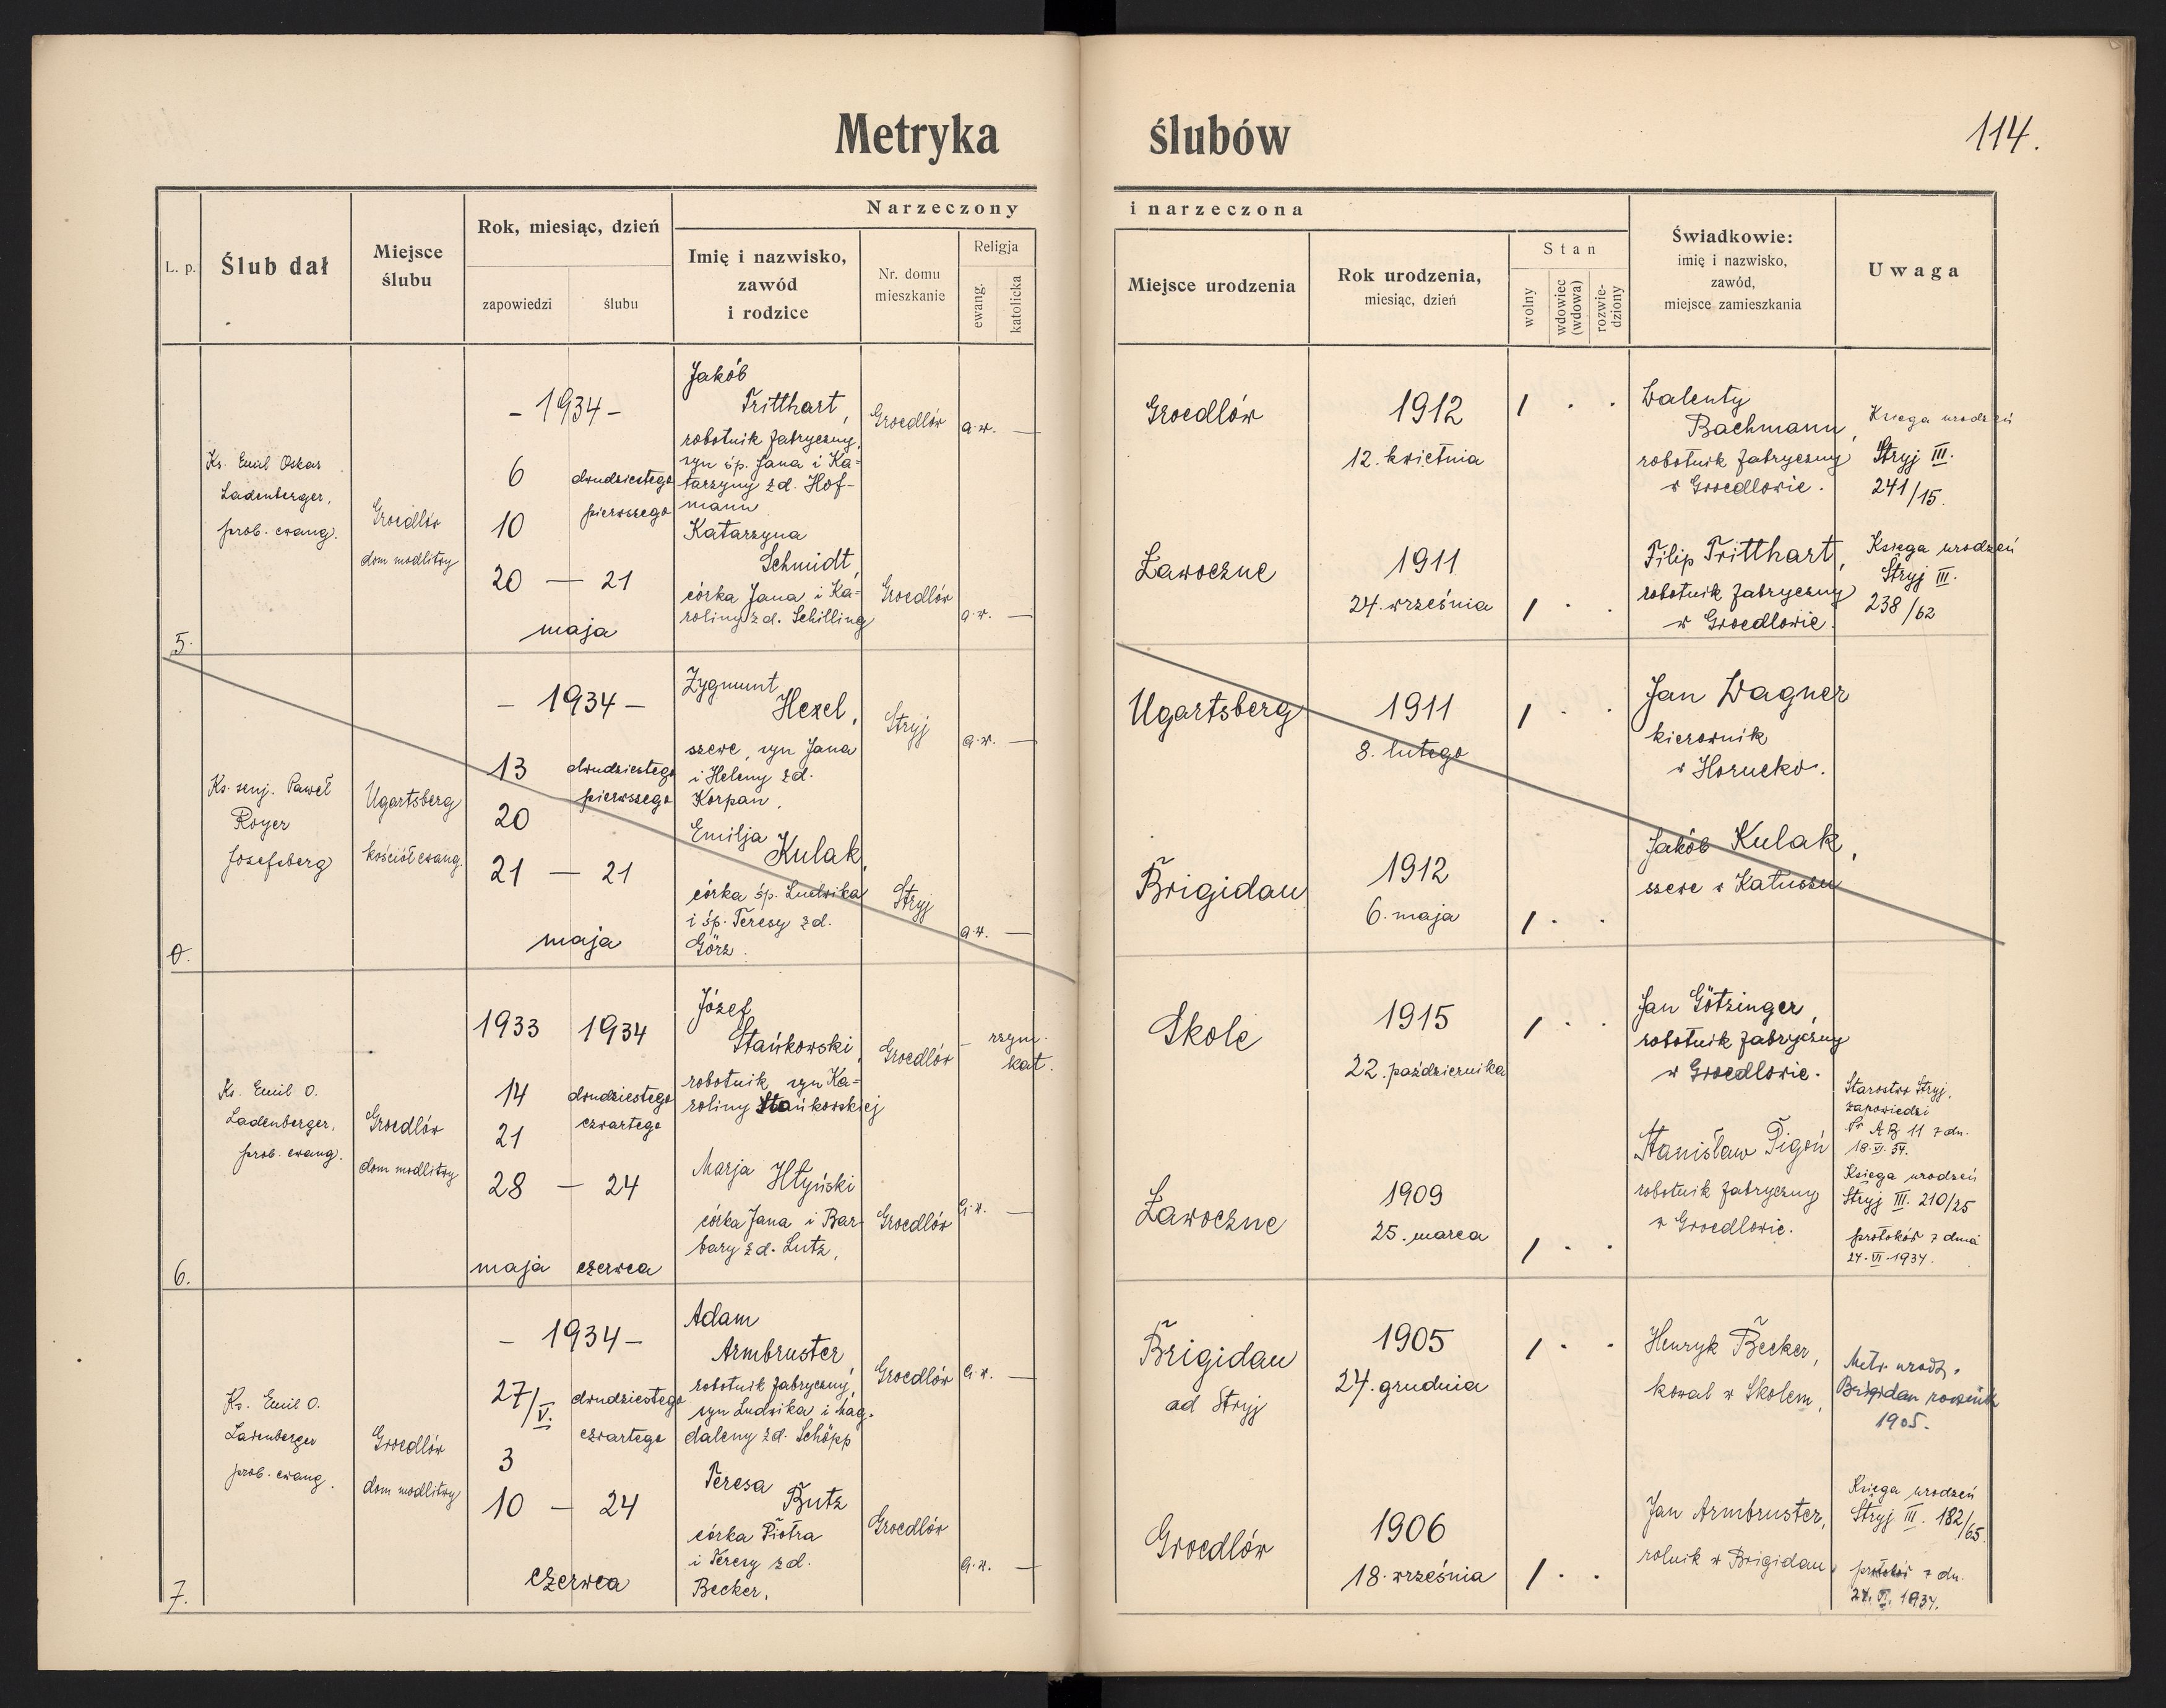 Metryka ślubów
114.
L. p.
Ślub dał
Miejsce
ślubu
Rok, miesiąc, dzień
zapowiedzi
ślubu
Narzeczony
Imię i nazwisko,
zawód
i rodzice
Nr. domu
mieszkanie
Religja
ewang.
katolicka
i narzeczona
Miejsce urodzenia
Rok urodzenia,
miesiąc, dzień
Stan
wolny
wdowiec
(wdowa)
rozwie-
dziony
Świadkowie:
imię i nazwisko,
zawód,
miejsce zamieszkania
Uwaga
5.
Ks. Emil Oskar
Ladenberger,
prob. ewang.
Groedlów
dom modlitwy
- 1934 -
6
10
20 — 21
dwudziestego
pierwszego
maja
Jakób
Tritthart,
robotnik fabryczny,
syn śp. Jana i Ka=
tarzyny z d. Hof-
mann
Groedlów
a.w. —
Katarzyna
Schmidt,
córka Jana i Ka=
roliny z d. Schilling
Groedlów
a.w. —
Groedlów
1912
12. kwietnia
1 . .
Walenty
Bachmann,
robotnik fabryczny
w Groedlowie.
Księga urodzeń
Stryj III.
241/15.
Ławoczne
1911
24. września
1 . .
Filip Tritthart,
robotnik fabryczny
w Groedlowie.
Księga urodzeń
Stryj III.
238/62
0.
Ks. senj. Paweł
Royer
Josefsberg
Ugartsberg
kościół ewang.
- 1934 -
13
20
21 — 21
dwudziestego
pierwszego
maja
Zygmunt
Hexel,
szewc, syn Jana
i Heleny z d.
Korpan,
Stryj
a.w. —
Emilja
Kulak,
córka śp. Ludwika
i śp. Teresy z d.
Görz.
Stryj
a.w. —
Ugartsberg
1911
8. lutego
1 . .
Jan Wagner
kierownik
w Horucko.
Brigidau
1912
6. maja
1 . .
Jakób Kulak,
szewc w Kałuszu
6.
Ks. Emil O.
Ladenberger,
prob. ewang.
Groedlów
dom modlitwy
1933
14
21
28 — 24
maja
1934
dwudziestego
czwartego
czerwca
Józef
Stańkowski,
robotnik, syn Ka=
roliny Stańkowskiej
Groedlów
— rzym.
kat.
Marja Hłyński
córka Jana i Bar-
bary z d. Lutz,
Groedlów
a.w. —
Skole
1915
22. października
1 . .
Jan Götzinger,
robotnik fabryczny
w Groedlowie.
Ławoczne
1909
25. marca
1 . .
Stanisław Pigoń
robotnik fabryczny
w Groedlowie.
Starostwo Stryj,
zapowiedzi
11 z dn.
18.VI.34.
Księga urodzeń
Stryj III. 210/25
protokół z dnia
24.VI.1934.
7.
Ks. Emil O.
Ladenberger
prob. ewang.
Groedlów
dom modlitwy
- 1934 -
27/V.
3
10 — 24
dwudziestego
czwartego
czerwca
Adam
Armbruster,
robotnik fabryczny,
syn Ludwika i Mag-
daleny z d. Schöpp
Groedlów
a.w. —
Teresa
Butz
córka Piotra
i Teresy z d.
Becker.
Groedlów
a.w. —
Brigidau
ad Stryj
1905
24. grudnia
1 . .
Henryk Becker,
kowal w Skolem,
Metr. urodz.
Brigidau rocznik
1905.
Groedlów
1906
18. września
1 . .
Jan Armbruster,
rolnik w Brigidau.
Księga urodzeń
Stryj III. 182/65
protokół z dn.
24.VI.1934.